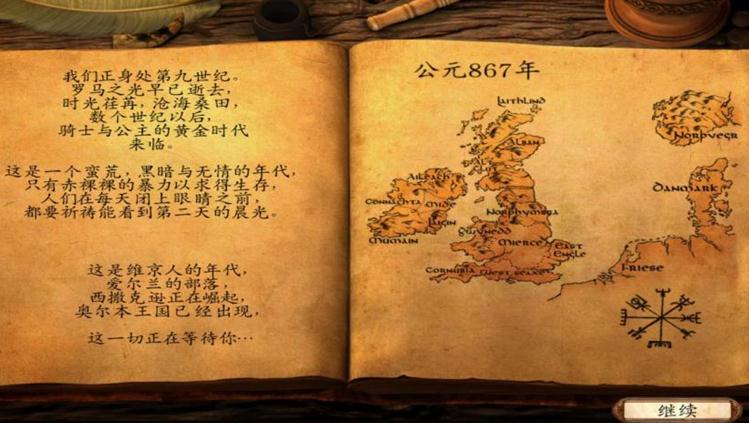 我们正身处第九世纪。
罗马之光早已逝去，
时光荏苒，沧海桑田，
数个世纪以后，
骑士与公主的黄金时代
来临。
这是一个蛮荒，黑暗与无情的年代，
只有赤裸裸的暴力以求得生存，
人们在每天闭上眼睛之前，
都要祈祷能看到第二天的晨光。
这是维京人的年代，
爱尔兰的部落，
西撒克逊正在崛起，
奥尔本王国已经出现，
这一切正在等待你…
公元867年
Laithlind
Norðvegr
Alban
Aileach
Danmark
Connachta Mide
Laigin
Norþhymbra
Mumain
Gwynedd
Mierce
East
Engle
Friese
Cornubia West Seaxe
继续